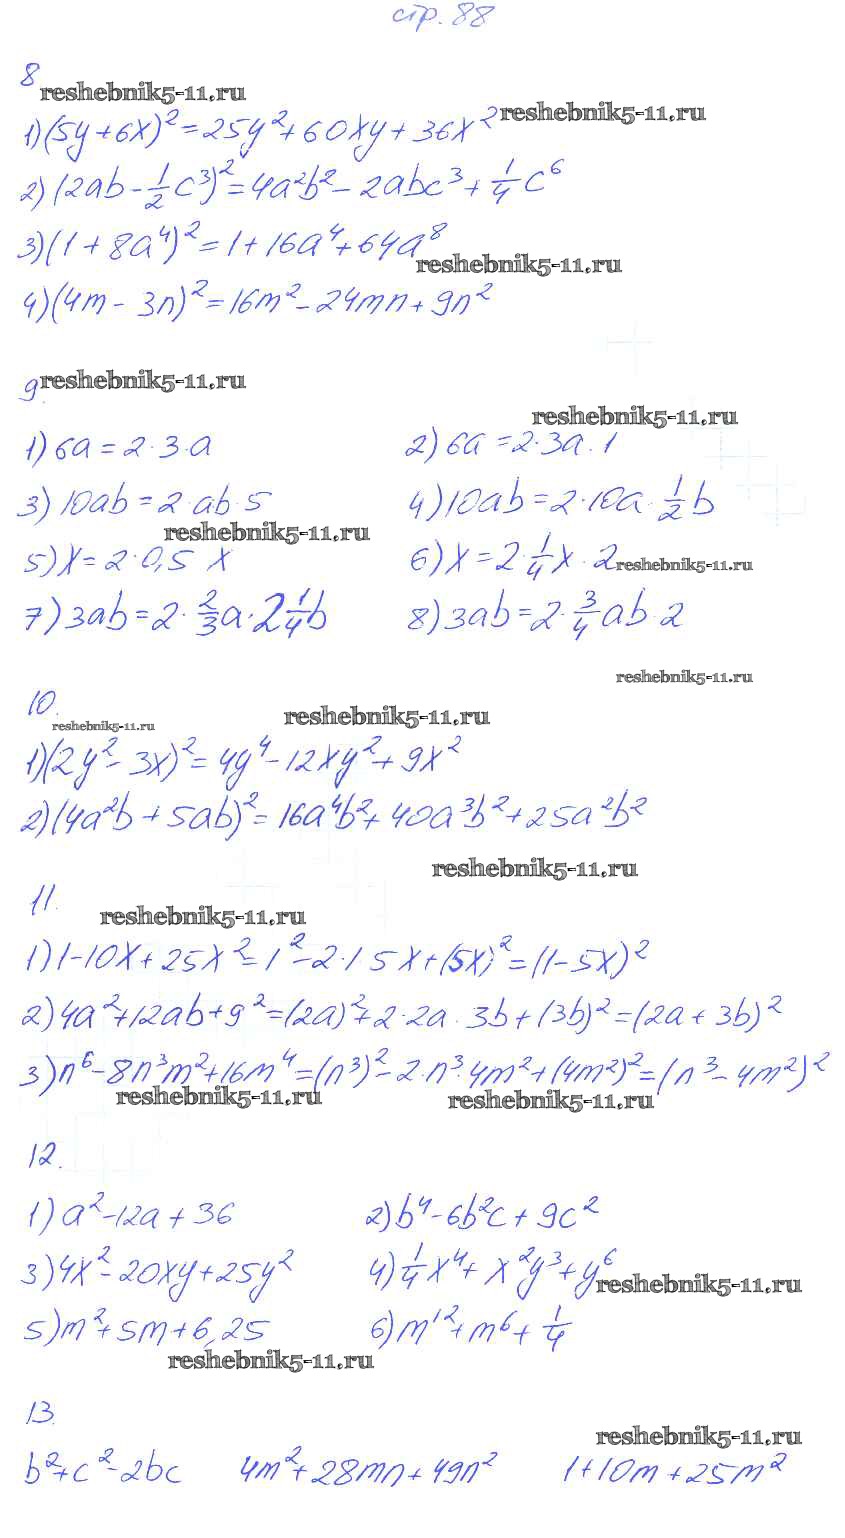 стр. 88
8
reshebnik5-11.ru
1) (5y + 6x)² = 25y² + 60xy + 36x²
reshebnik5-11.ru
2) (2ab - 1/2 c³)² = 4a²b² - 2abc³ + 1/4 c⁶
3) (1 + 8a⁴)² = 1 + 16a⁴ + 64a⁸
reshebnik5-11.ru
4) (4m - 3n)² = 16m² - 24mn + 9n²
9.
reshebnik5-11.ru
reshebnik5-11.ru
1) 6a = 2·3·a 2) 6a = 2·3a·1
3) 10ab = 2·ab·5 4) 10ab = 2·10a·1/2 b
reshebnik5-11.ru
5) x = 2·0,5 x 6) x = 2·1/4 x·2
reshebnik5-11.ru
7) 3ab = 2·2/3 a·2 1/4 b 8) 3ab = 2·3/4 ab·2
reshebnik5-11.ru
10.
reshebnik5-11.ru
reshebnik5-11.ru
1) (2y² - 3x)² = 4y⁴ - 12xy² + 9x²
2) (4a²b + 5ab)² = 16a⁴b² + 40a³b² + 25a²b²
reshebnik5-11.ru
11.
reshebnik5-11.ru
1) 1 - 10x + 25x² = 1² - 2·1 5x + (5x)² = (1 - 5x)²
2) 4a² + 12ab + 9² = (2a)² + 2·2a·3b + (3b)² = (2a + 3b)²
3) n⁶ - 8n³m² + 16m⁴ = (n³)² - 2·n³·4m² + (4m²)² = (n³ - 4m²)²
reshebnik5-11.ru
reshebnik5-11.ru
12.
1) a² - 12a + 36 2) b⁴ - 6b²c + 9c²
3) 4x² - 20xy + 25y² 4) 1/4 x⁴ + x²y³ + y⁶
reshebnik5-11.ru
5) m² + 5m + 6,25 6) m¹² + m⁶ + 1/4
reshebnik5-11.ru
13.
reshebnik5-11.ru
b² + c² - 2bc 4m² + 28mn + 49n² 1 + 10m + 25m²